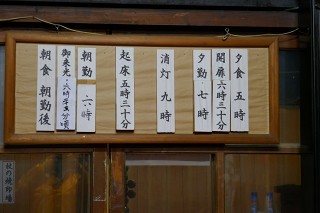 夕食 五時
開扉 六時三十分
夕勤 七時
消灯 九時
起床 五時三十分
朝勤 六時
御来光
朝食 朝勤後